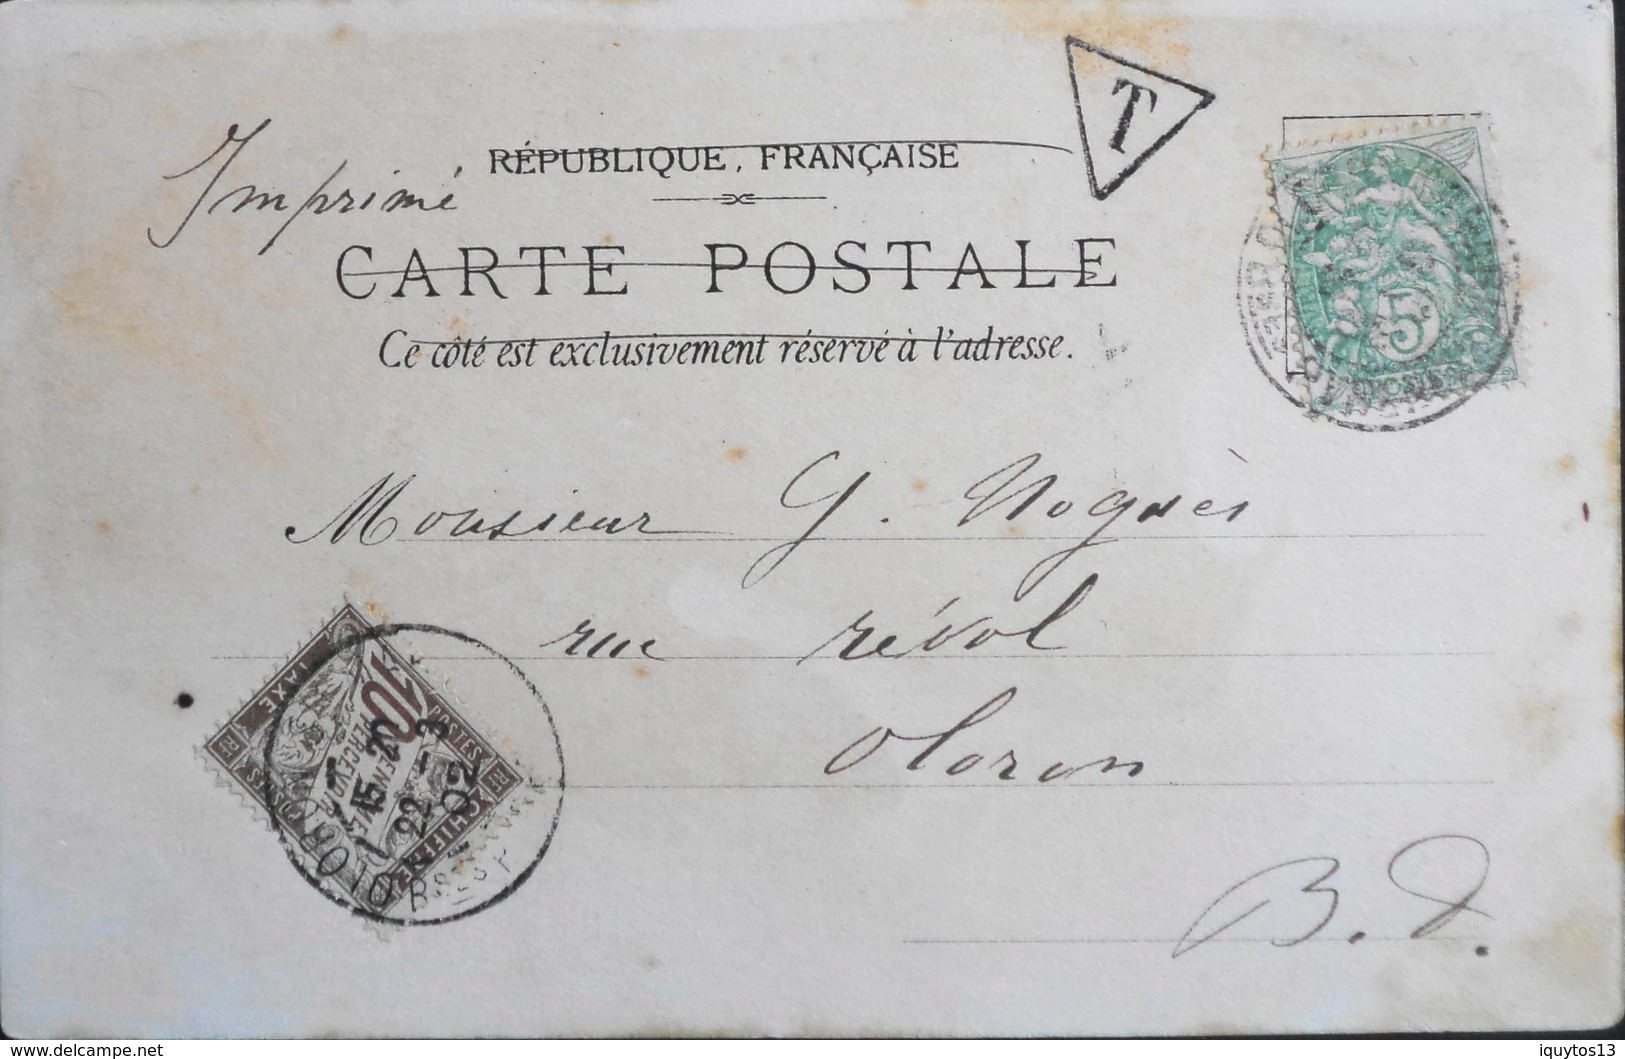 T
Imprimé
RÉPUBLIQUE FRANÇAISE
CARTE POSTALE
Ce côté est exclusivement réservé à l'adresse.
5
Monsieur G. Noguès
rue révol
Oloron
B. P.
POSTES
CHIFFRE
TAXE
10
CENTIMES
À PERCEVOIR
RF
RF
OLORON
15 20
22 - 3
02
BSES PYRENEES
delcampe.net
iquytos13